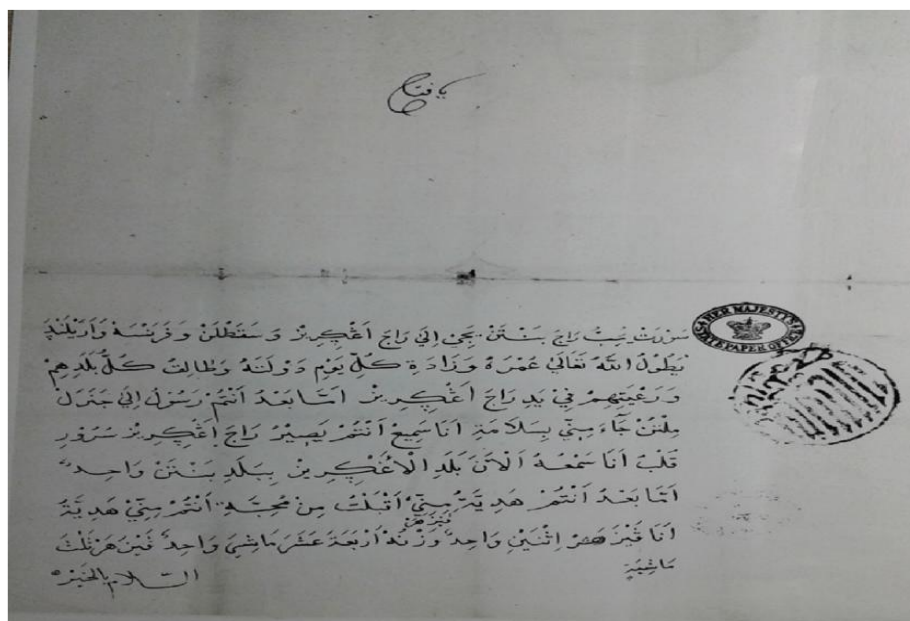 يا فتاح
سُوْرَتْ تِيبُ رَاجَ بَنْتَنْ يَجِيْ اِلَيْ رَاجَ اَڠْكِرِيْسْ وَسَقَطْلَنْ وَفَرَنْسَهْ وَاَرْبْلَنْدَ
يُطَوِّلُ اللّٰهُ تَعَالَي عُمْرَهُ وَزَادَةِ كُلِّ يَوْمٍ دَوْلَتَهُ وَطَالِتُ كُلُّ بَلَدِهِمْ
وَرَعْيَتِهِمْ فِيْ يَدِ رَاجَ اَڠْكِرِيْسْ اَمَّا بَعْدُ اَنْتُمْ رَسُوْلُ اِلَيْ جَنْرَلْ
مِلْتُنْ جَآءَ مِنِّيْ بِسَلَامَةِ اَنَا سَمِيْعُ اَنْتُمْ يَصِيْرُ رَاجَ اِڠْكِرِيْسْ سُرُوْرِ
قَلْبُ اَنَا سَمْعُهُ اَلْاٰنَ بَلَدِ الْاَڠْكِرِيْسْ بِبَلَدِ بَنْتَنْ وَاحِدٌ
اَمَّا بَعْدُ اَنْتُمْ هَدِيَّةُ مِنِّيْ اَقْبَلْتُ مِنْ مُحِبَّةِ اَنْتُمْ مِنِّيْ هَدِيَّةُ
اَنَا اِثْنَيْنِ وَاحِدٌ وَزْنُهُ اَرْبَعَةَ عَشَرَ مَاشِيَ وَاحِدٌ ثَلْثَ
مَاشِيَةٍ
السَّلَامُ بِالْخَيْرِ
HER MAJESTY'S
STATE PAPER OFFICE